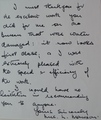 I must thank you for
the excellent work you
did for me on the
bureau that was water
damaged; it now looks
first class. I was
extremely pleased with
the speed & efficiency of
the work.
I would have no
hesitation in recommending
you to anyone.
Yours Sincerely